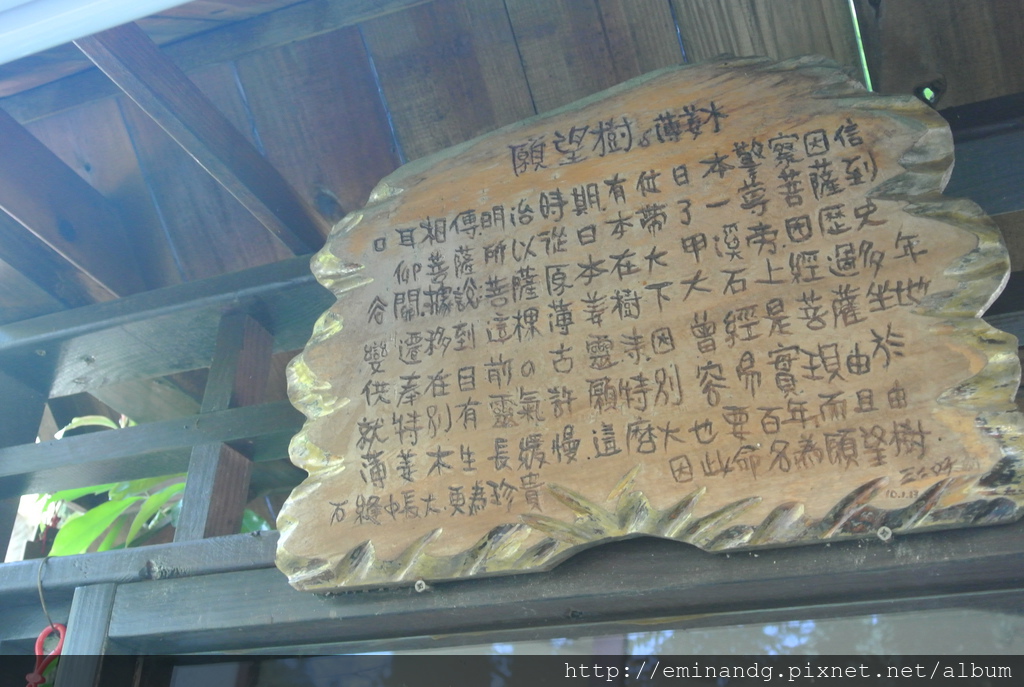 願望樹。薄姜木
口耳相傳明治時期有位日本警察因信
仰菩薩所以從日本帶了一尊菩薩到
谷關據說菩薩原本在大甲溪旁因歷史
變遷移到這棵薄姜樹下大石上經過多年
供奉在目前の古靈寺因曾經是菩薩坐地
就特別有靈氣許願特別容易實現由於
薄姜木生長緩慢這麼大也要百年而且由
石縫中長大.更為珍貴 因此命名為願望樹.
http://eminandg.pixnet.net/album